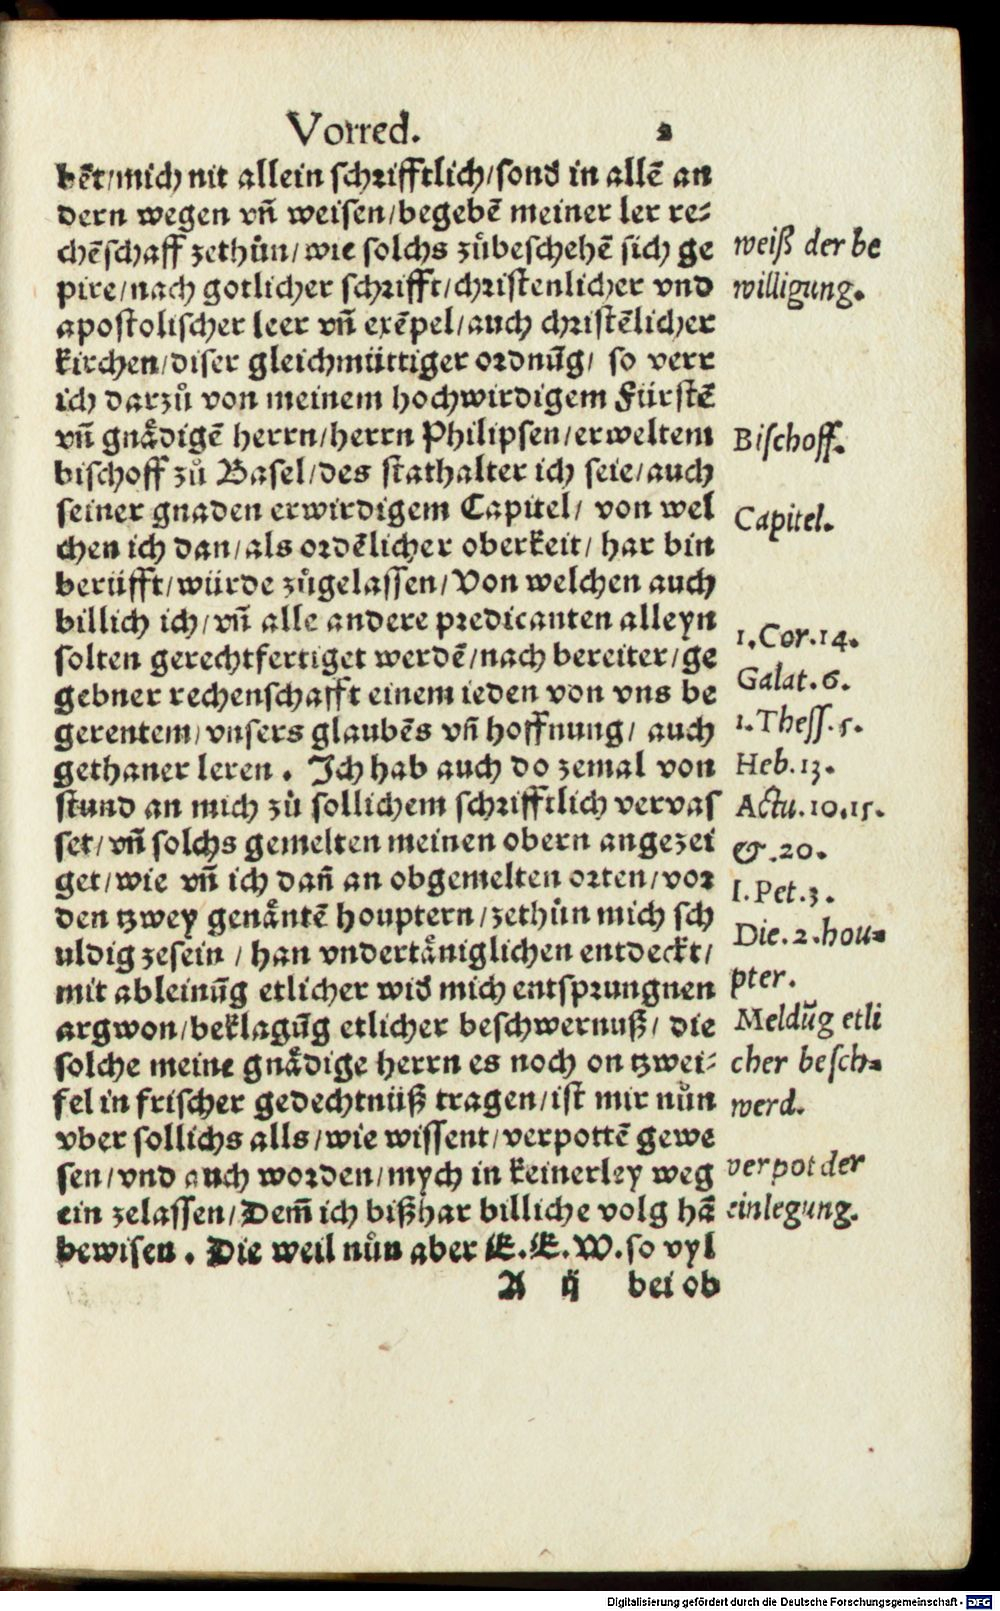 Vorred. 2
bẽt/mich nit allein schrifftlich/sond in allẽ an
dern wegen vñ weisen/begebẽ meiner ler re⸗
chẽschaff zethůn/wie solchs zůbeschehẽ sich ge
pire/nach gotlicher schrifft/christenlicher vnd
apostolischer leer vñ exẽpel/auch christẽlicher
kirchen/diser gleichmüttiger ordnũg/ so verr
ich darzů von meinem hochwirdigem Fürstẽ
vñ gnådigẽ herrn/herrn Philipsen/erweltem
bischoff zů Basel/des stathalter ich seie/auch
seiner gnaden erwirdigem Capitel/ von wel
chen ich dan/als ordẽlicher oberkeit/ har bin
berüfft/würde zůgelassen/Von welchen auch
billich ich/vñ alle andere predicanten alleyn
solten gerechtfertiget werdẽ/nach bereiter/ge
gebner rechenschafft einem ieden von vns be
gerentem/vnsers glaubẽs vñ hoffnung/ auch
gethaner leren. Ich hab auch do zemal von
stund an mich zů sollichem schrifftlich vervas
set/vñ solchs gemelten meinen obern angezei
get/wie vñ ich dañ an obgemelten orten/vor
den tzwey genåntẽ houptern/zethůn mich sch
uldig zesein/han vndertåniglichen entdeckt/
mit ableinũg etlicher wid mich entsprungnen
argwon/beklagũg etlicher beschwernuß/ die
solche meine gnådige herrn es noch on tzwei⸗
fel in frischer gedechtnüß tragen/ist mir nůn
vber sollichs alls/wie wissent/verpottẽ gewe
sen/vnd auch worden/mych in keinerley weg
ein zelassen/Dem̃ ich bißhar billiche volg hã
bewisen. Die weil nůn aber E.E.W.so vyl
A ij bei ob
weiß der be
willigung.
Bischoff.
Capitel.
1.Cor.14.
Galat.6.
1.Thess.5.
Heb.13.
Actu.10.15.
&.20.
I.Pet.3.
Die.2.hou⸗
pter.
Meldũg etli
cher besch⸗
werd.
verpot der
einlegung.
Digitalisierung gefördert durch die Deutsche Forschungsgemeinschaft - DFG